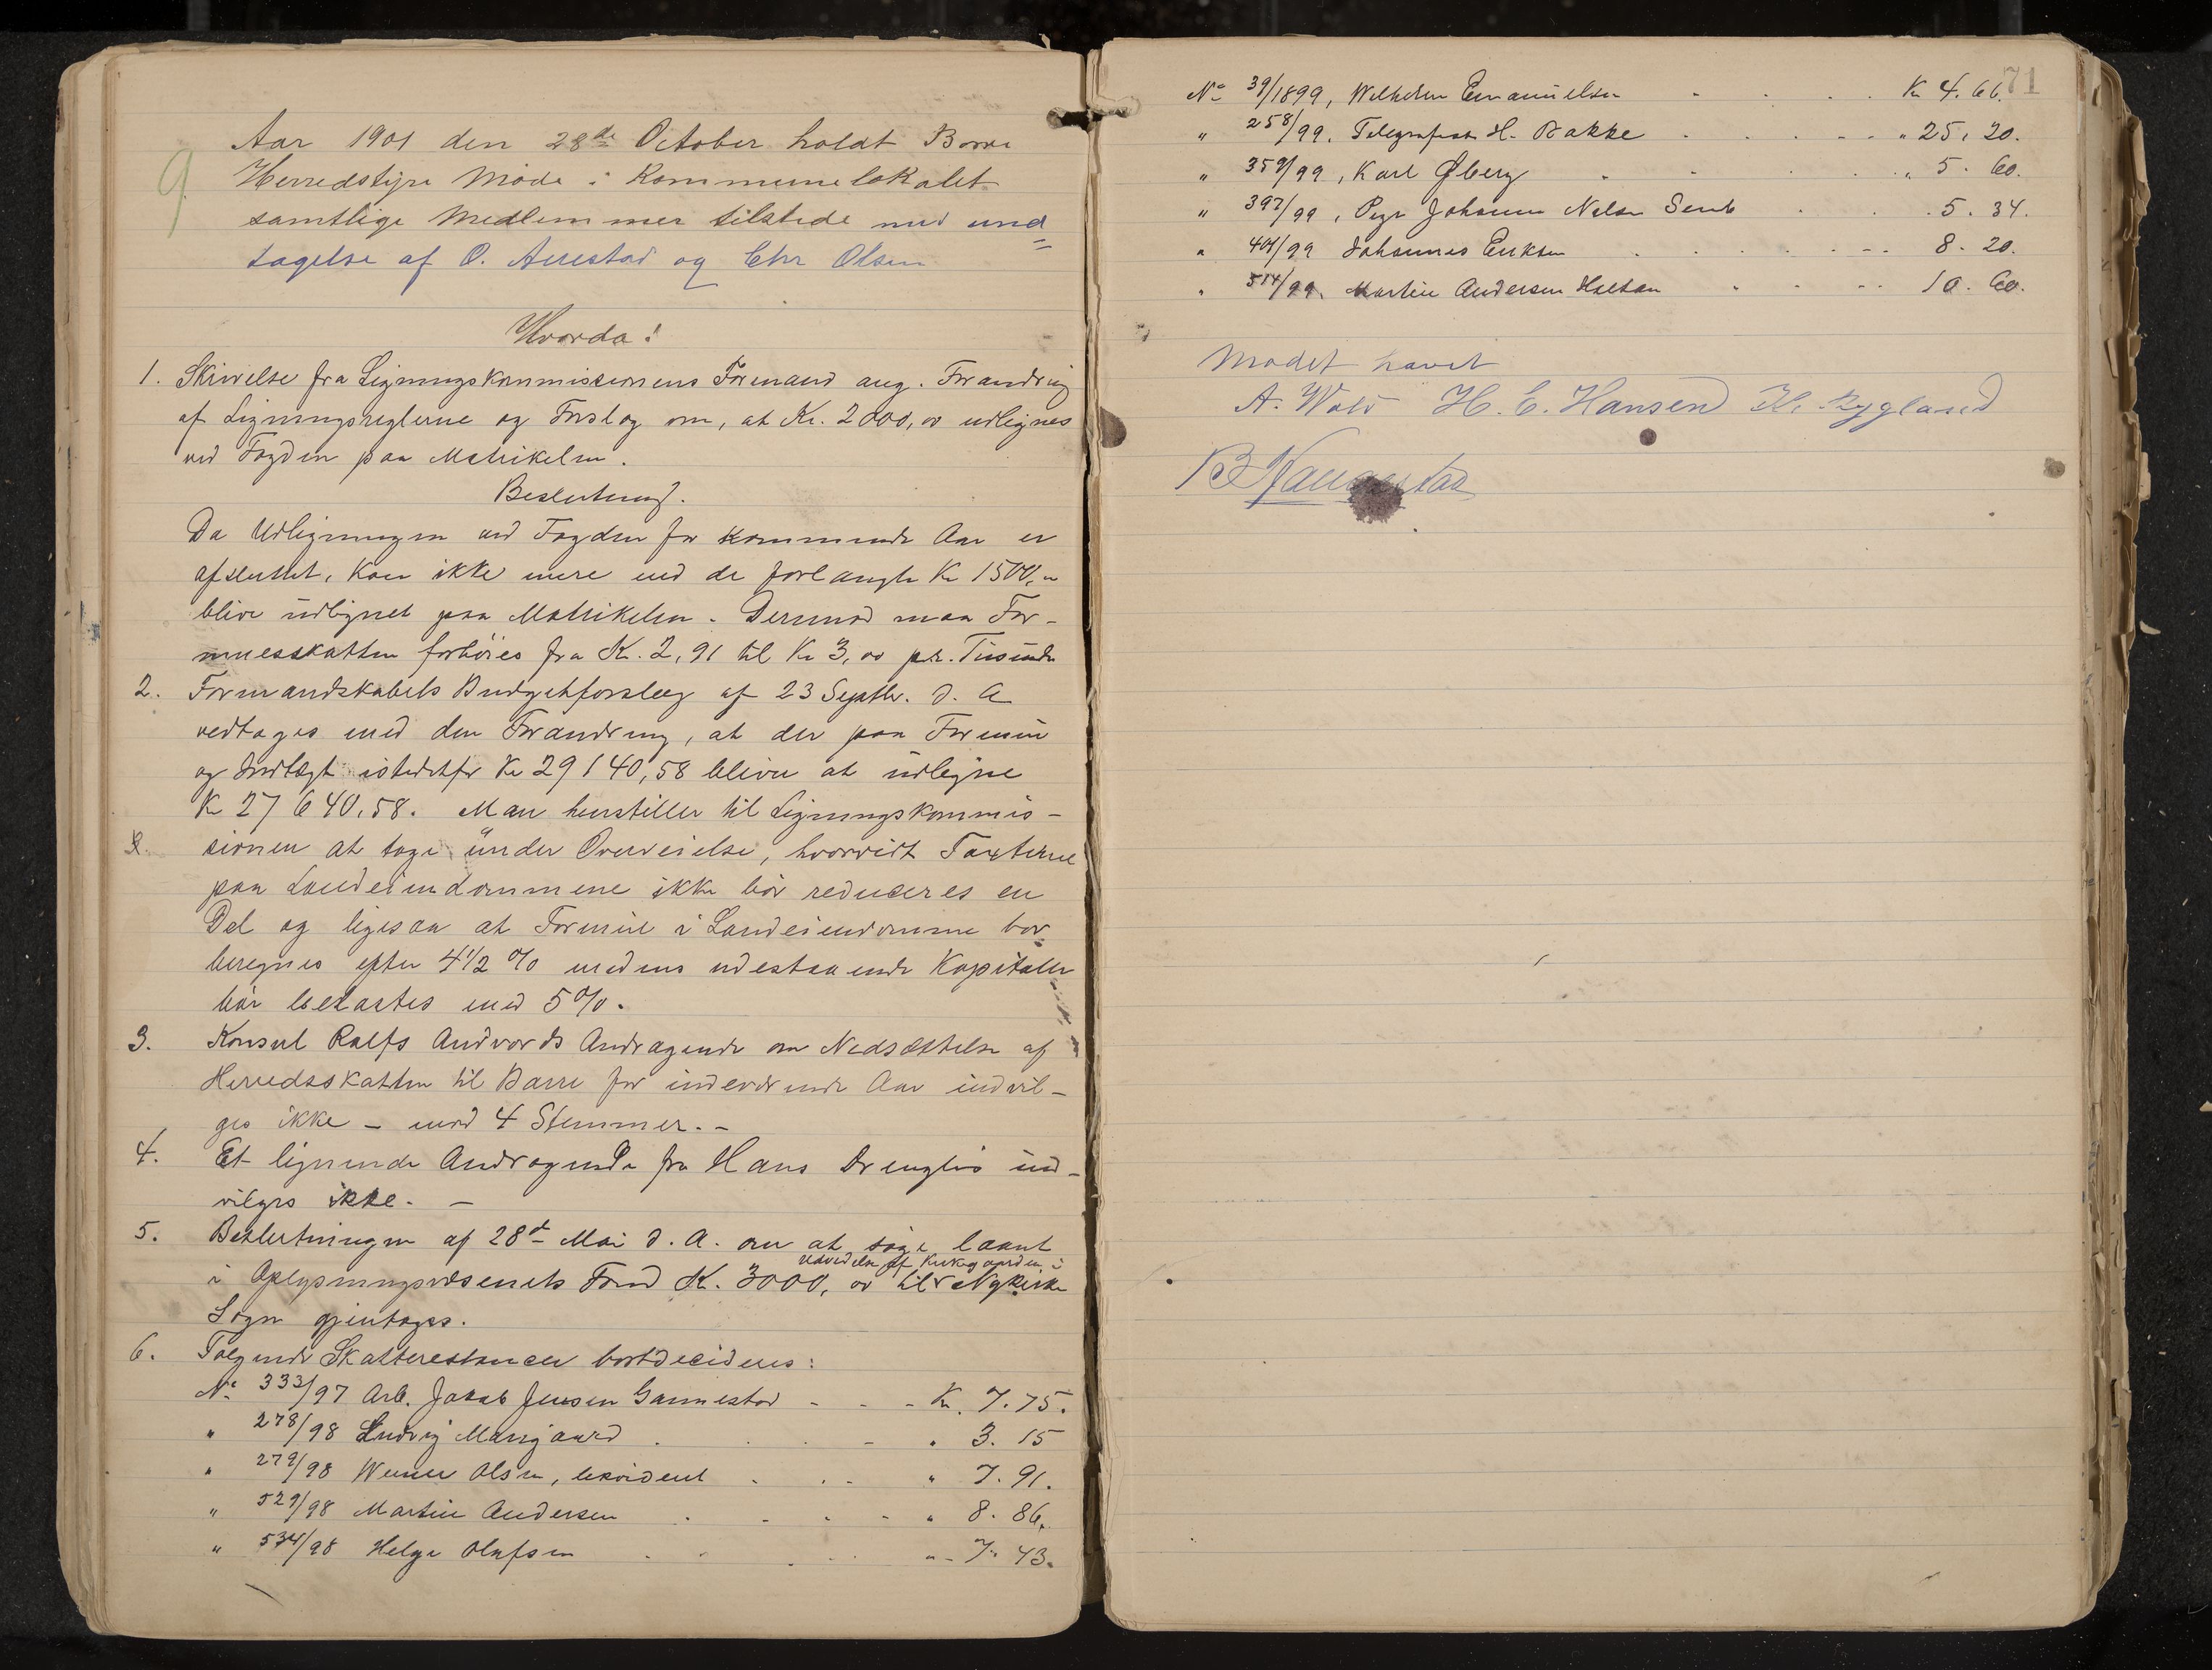 9
Aar 1901 den 28de October holdt Borre
Herredstyre Møde i Kommunelokalet
samtlige Medlemmer tilstede med und=
tagelse af O. Aurestad og Chr Olsen
Hvorda:
1. Skrivelse fra Ligningskommissionens Formand ang. Forandring
af Ligningsreglerne og Forslag om, at Kr. 2000,00 udlignes
ved Fogden paa Matrikelen.
Beslutning.
Da Udligningen ved Fogden for kommende Aar er
afsluttet, kan ikke mere end de forlangte Kr 1500,00
blive udlignet paa Matrikelen. Derimod maa For-
muesskatten forhøies fra Kr. 2,91 til Kr 3,00 pr. Tusinde
2. Formandskabets Budgetforslag af 23 Septbr. d. A
vedtages med den Forandring, at der paa Formue
og Indtægt istedetfor Kr 29140,58 bliver at udligne
Kr 27640,58. Man henstiller til Ligningskommis-
sionen at tage under Overveielse, hvorvidt Taxterne
paa Landeiendommene ikke bør reduceres en
Del og ligesaa at Formue i Landeiendomme bør
beregnes efter 4 1/2 % medens udestaaende Kapitaler
bør belastes med 5%.
3. Konsul Ralfs Andvords Andragende om Nedsættelse af
Herredsskatten til Borre for indeværende Aar indvil-
ges ikke - mod 4 Stemmer. -
4. Et lignende Andragende fra Hans ind-
vilges ikke. -
5. Beslutningen af 28de Mai d. A. om at søge laant
i Oplysningsvæsenets Fond Kr. 3000,00 til Udvidelse af Kirkegaarden i Nykirke
Sogn gjentages.
6. Følgende Skatterestancer bortdecideres:
No 333/97 Arb. Jakob Jensen Gannestad - - - Kr. 7.75.
" 278/98 Ludvig " 3. 15
" 279/98 Werner Olsen, " 7. 91.
" 529/98 Martin Andersen " 8. 86.
" 534/98 Helge Olafsen " 7. 43.
71
No 39/1899, Wilhelm Emanuelsen Kr 4. 66.
" 258/99. Telegrafist H. Bakke " 25. 20.
" 359/99, Karl Øberg " 5. 60.
" 397/99, Pige Johanne Nelsen Semb 5. 34.
" 401/99 Johannes Eriksen 8. 20.
" 514/99. Martin Andersen Holtan 10. 60.
Mødet hævet
A. Wold H. E. Hansen Kl. Rygland
B Haugestad